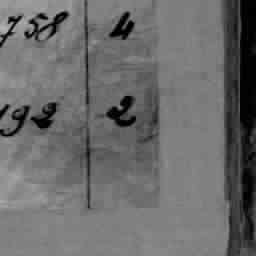 758 4
192 2